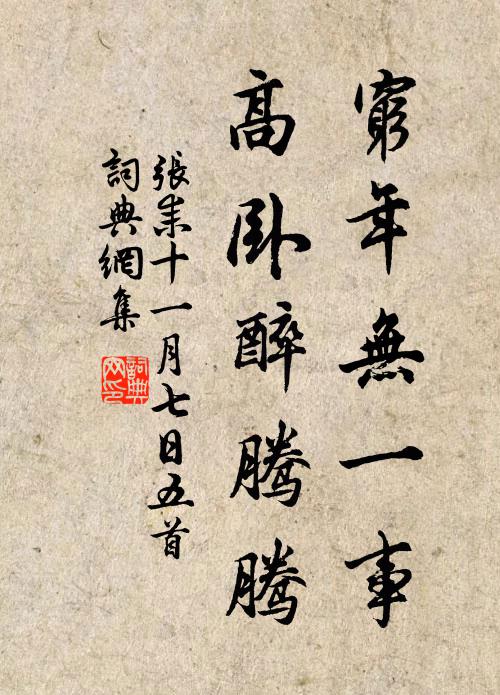 窮年無一事
高卧醉騰騰
張耒十一月七日五首
詞典網集
詞典
网印